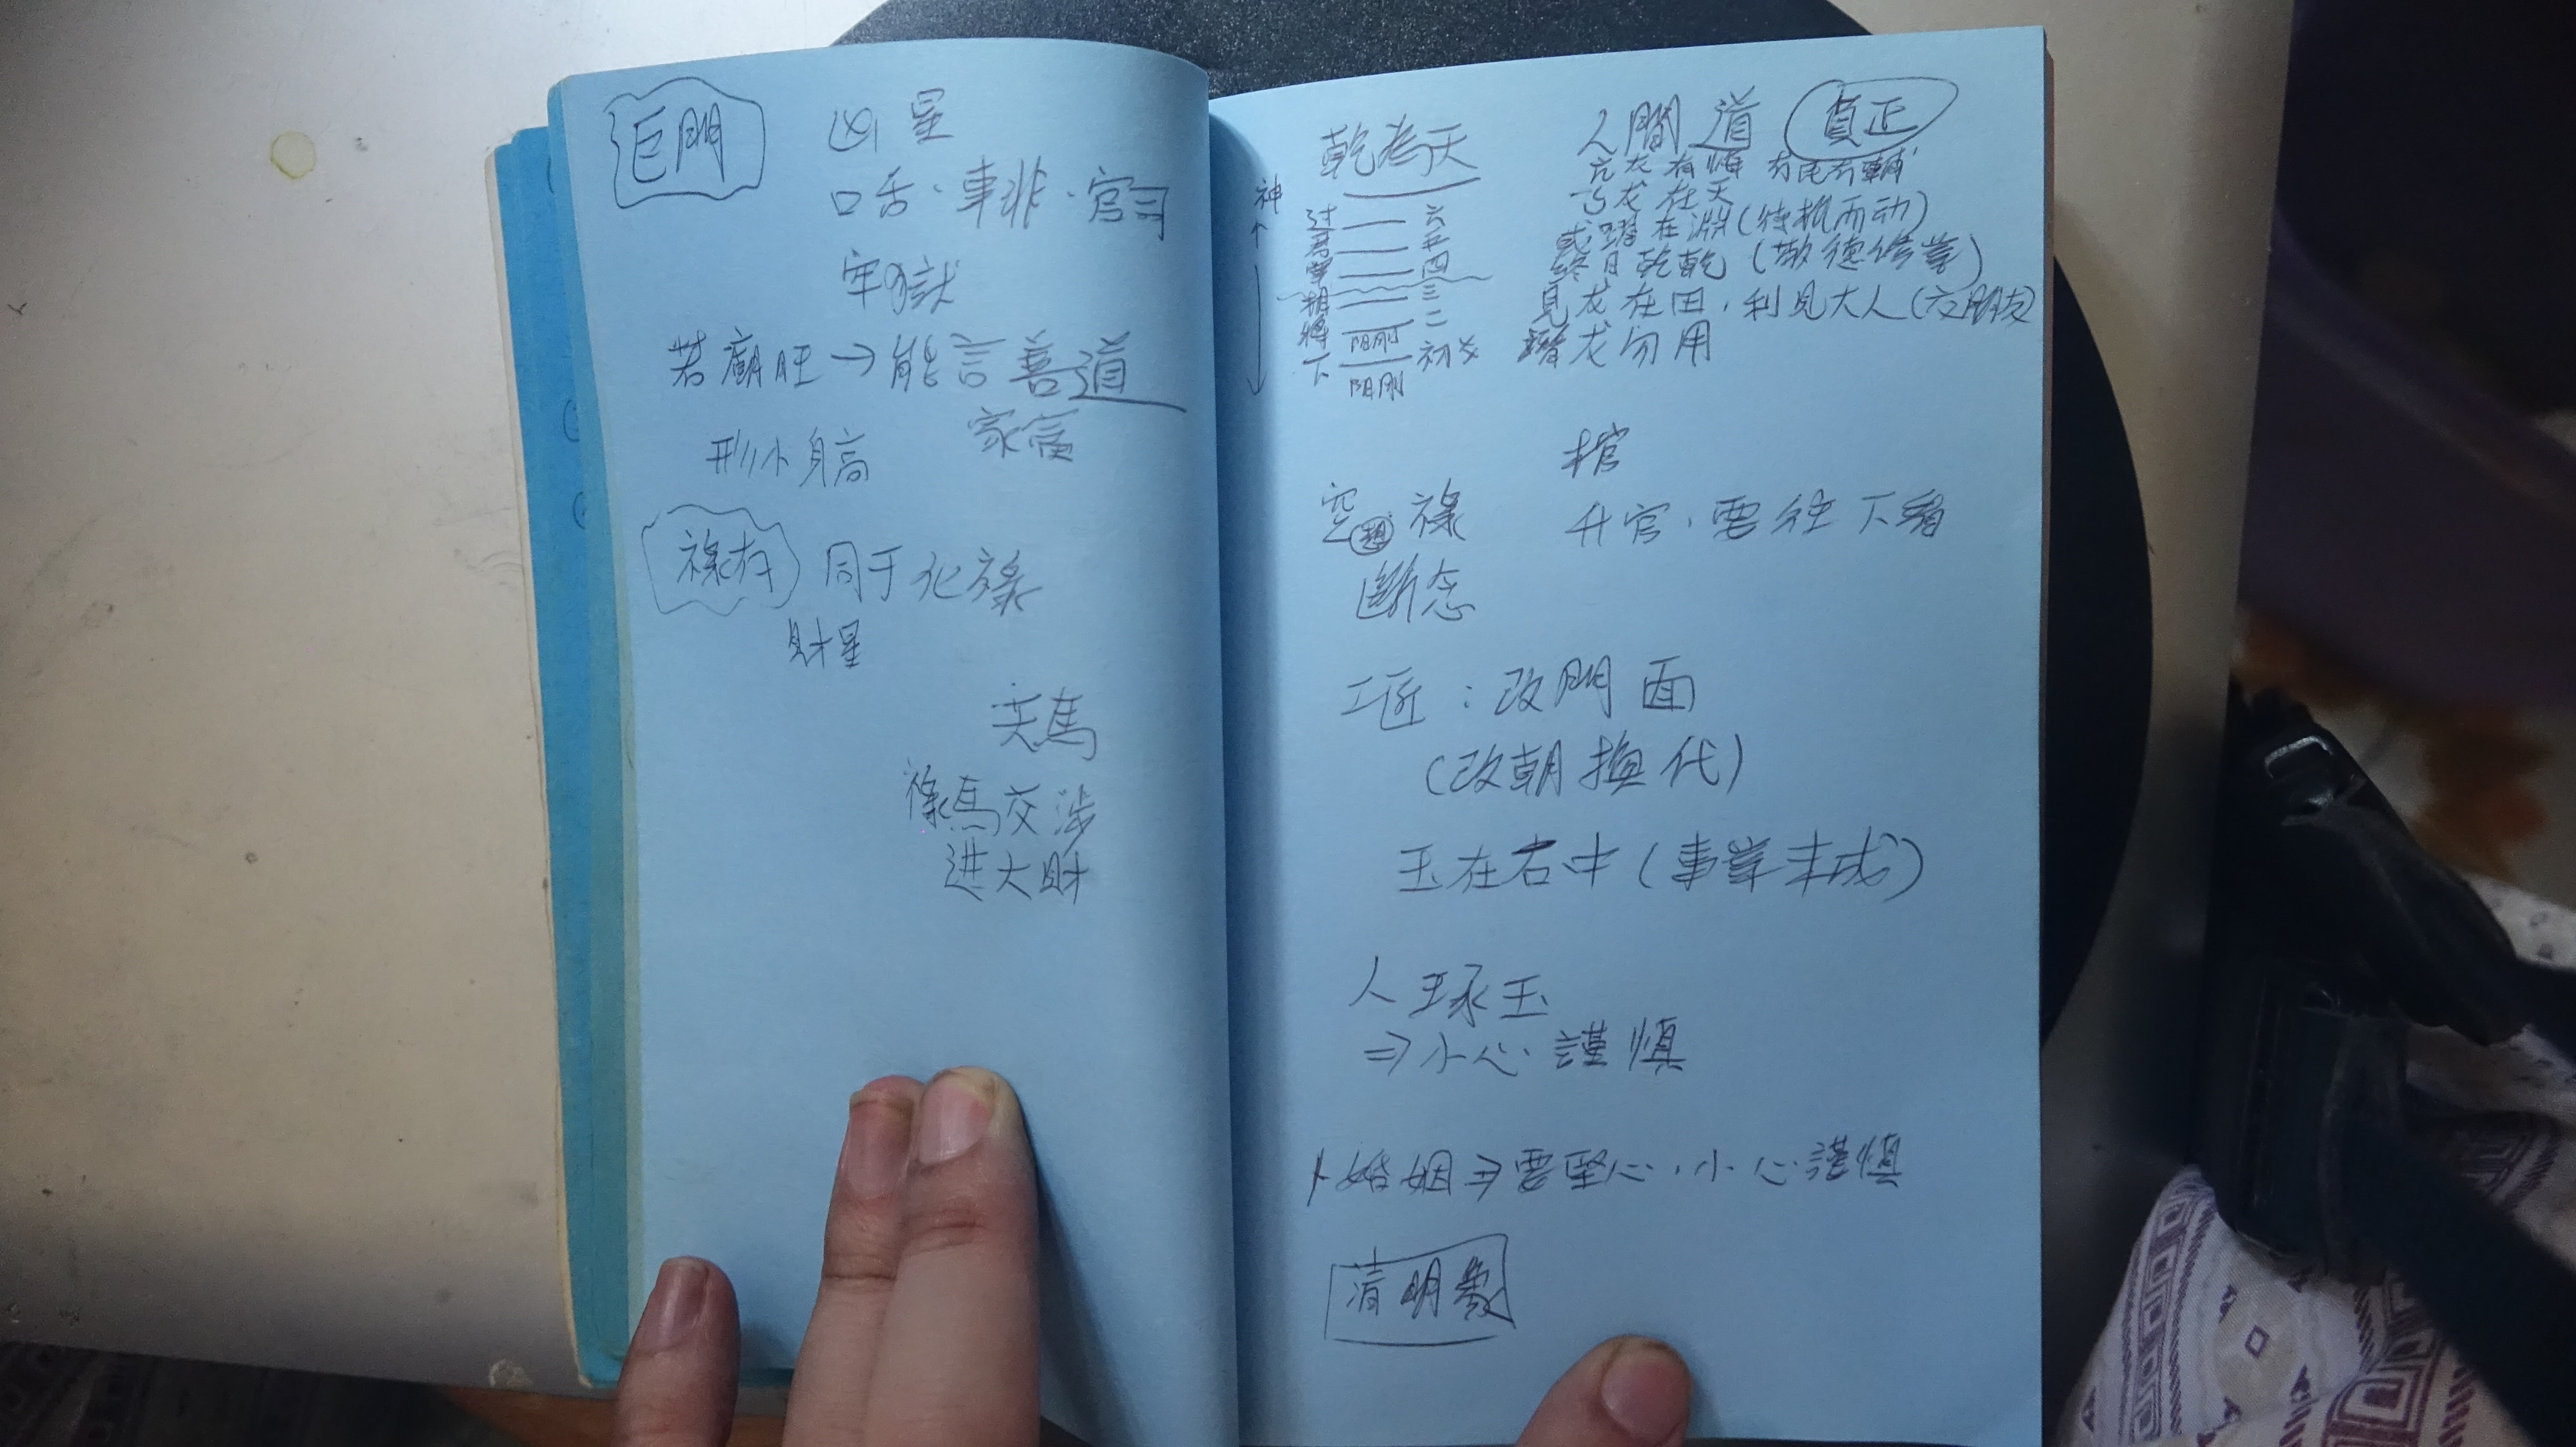 巨門
凶星
口舌·事非·官司
牢獄
若廟旺→能言善道
形小身高
祿存 同于化祿
財星
天馬
祿馬交涉
进大財
乾為天
人間道 貞正
亢龙有悔 有民有輔
飞龙在天
或躍在淵(待机而动)
終日乾乾 (敬德修業)
見龙在田,利見大人(交朋友)
潛龙勿用
神
六
五
四
三
二
初爻
下
阳刚
阳刚
棺
空想 祿
升官,要往下看
斷念
工匠:改門面
(改朝換代)
玉在石中(事業未成)
人琢玉
⇒小心·謹慎
卜婚姻⇒要堅心,小心謹慎
清明象